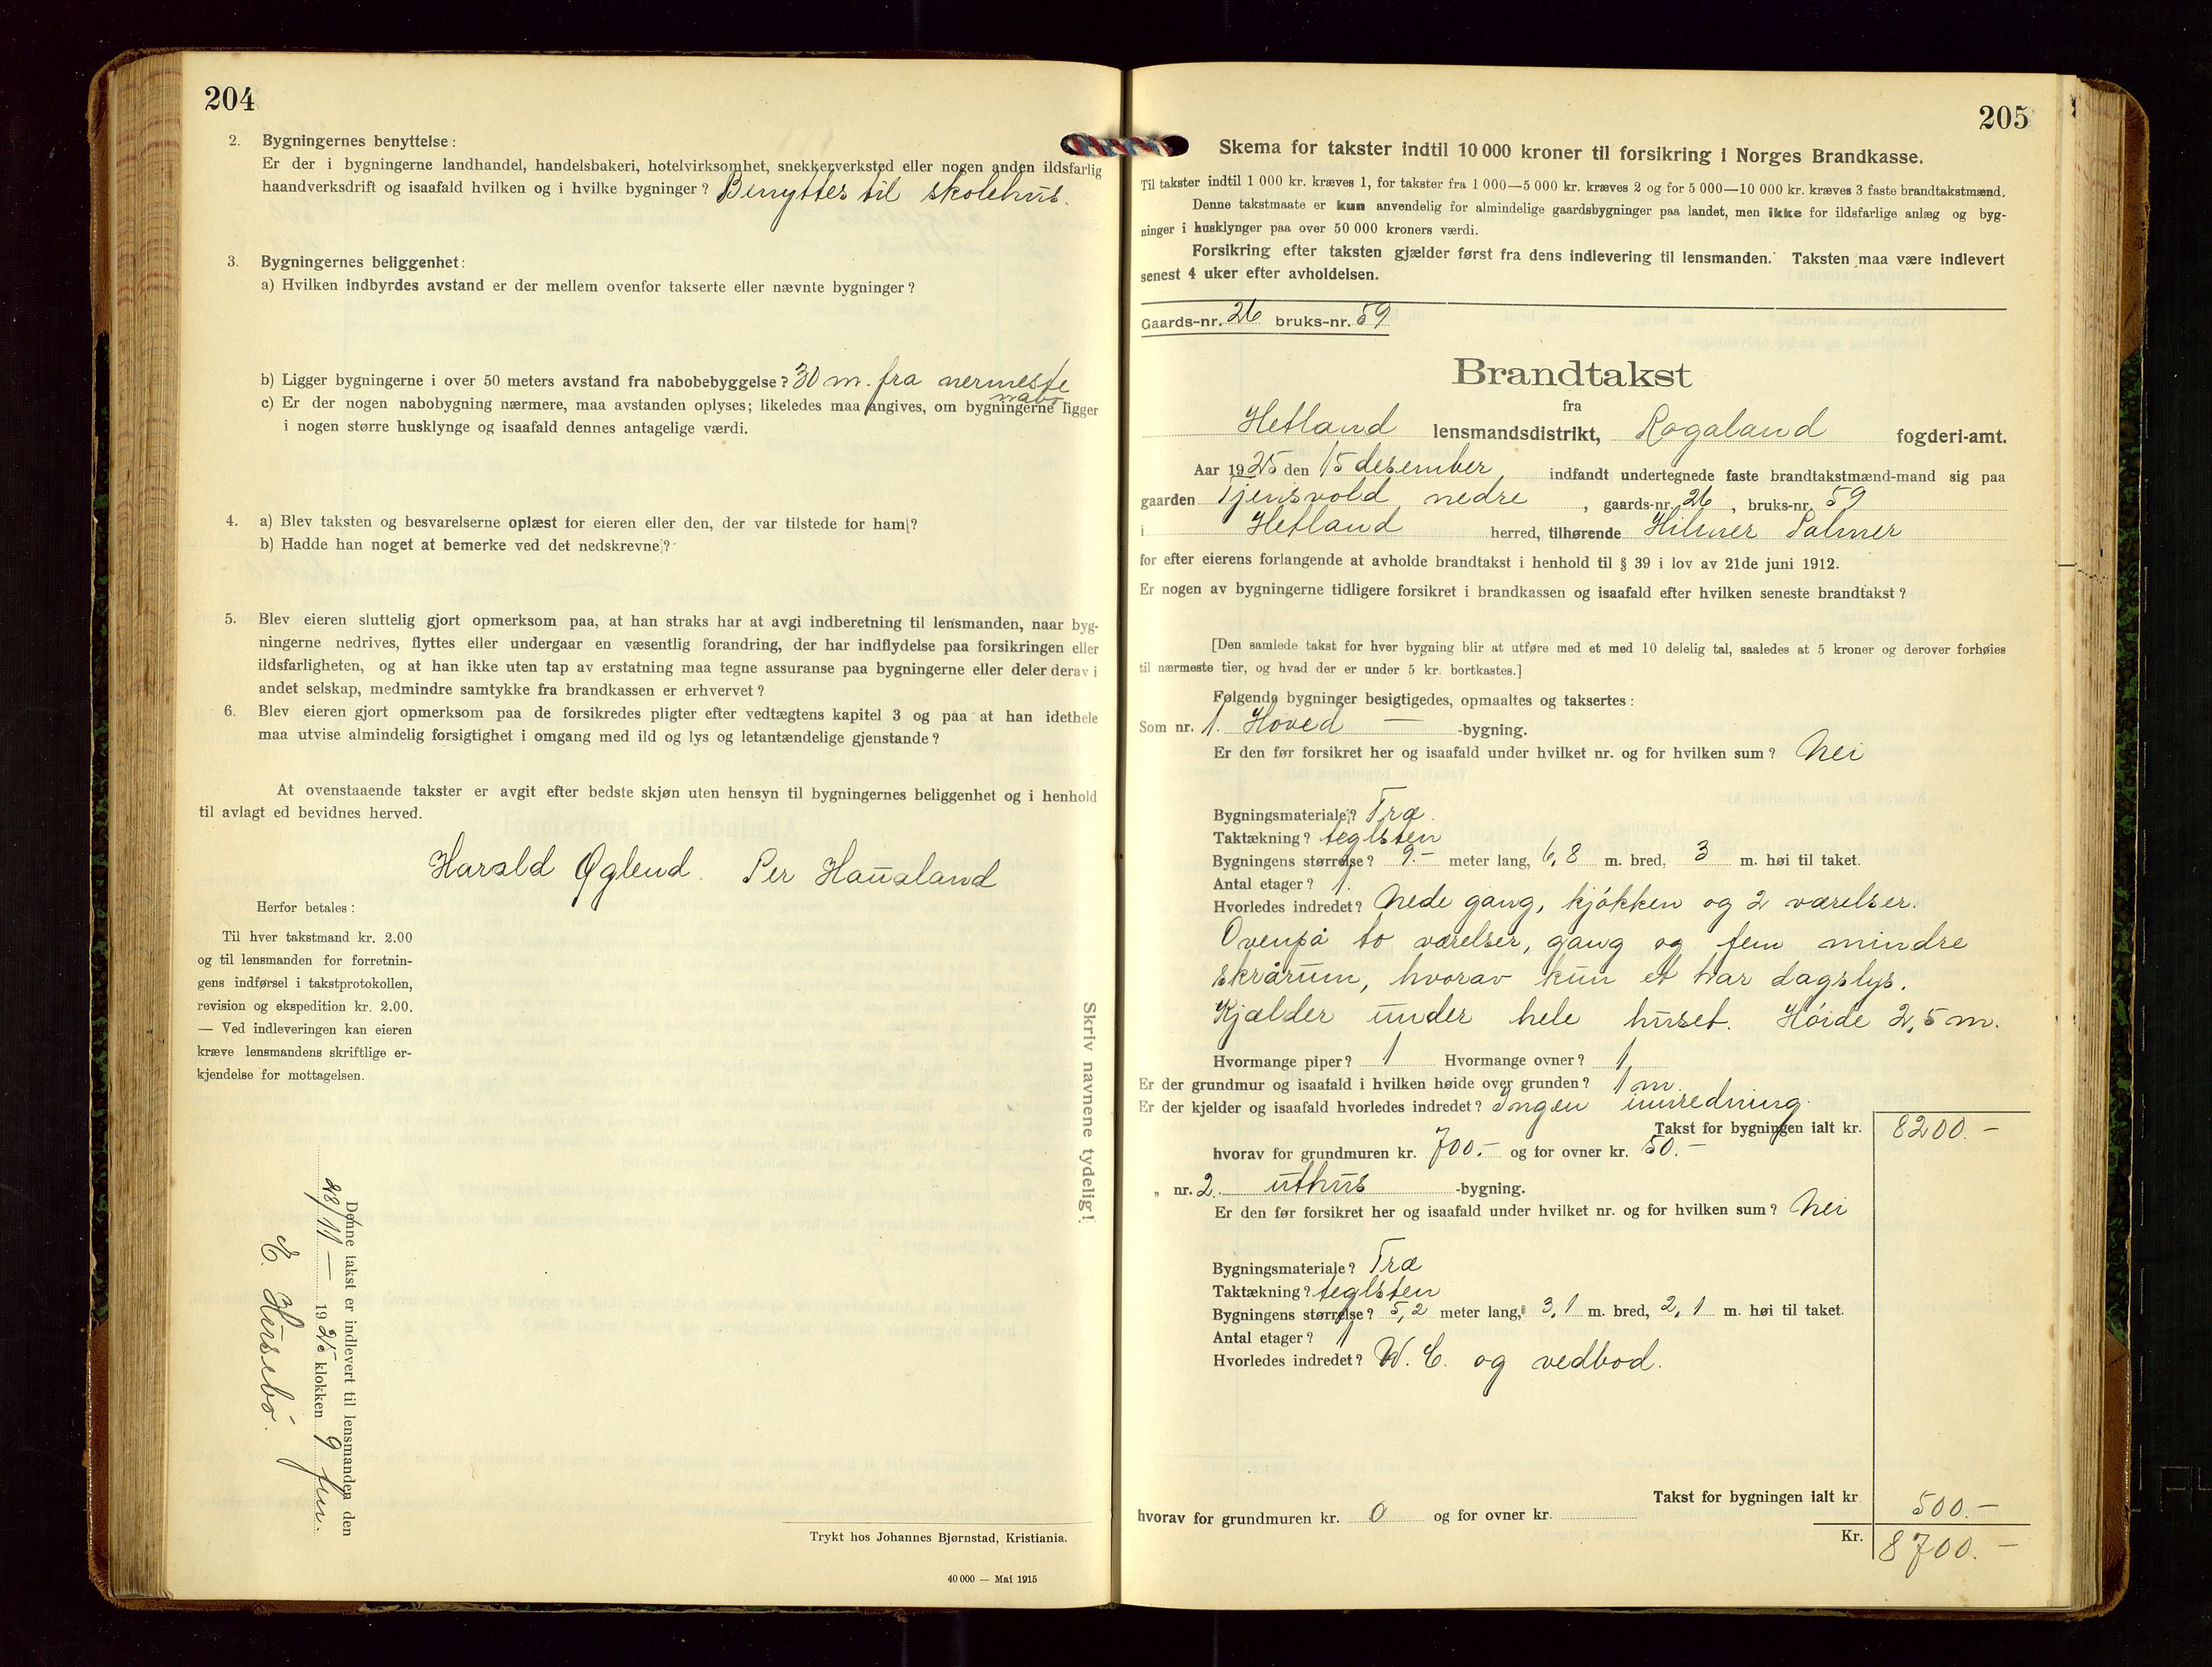 204
2. Bygningernes benyttelse:
Er der i bygningerne landhandel, handelsbakeri, hotelvirksomhet, snekkerverksted eller nogen anden ildsfarlig
haandverksdrift og isaafald hvilken og i hvilke bygninger? Benyttes til skolehus.
3. Bygningernes beliggenhet:
a) Hvilken indbyrdes avstand er der mellem ovenfor takserte eller nævnte bygninger?
b) Ligger bygningerne i over 50 meters avstand fra nabobebyggelse? 30 m. fra nermeste
nabo.
c) Er der nogen nabobygning nærmere, maa avstanden oplyses; likeledes maa angives, om bygningerne ligger
i nogen større husklynge og isaafald dennes antagelige værdi.
4. a) Blev taksten og besvarelserne oplæst for eieren eller den, der var tilstede for ham?
b) Hadde han noget at bemerke ved det nedskrevne?
5. Blev eieren sluttelig gjort opmerksom paa, at han straks har at avgi indberetning til lensmanden, naar byg-
ningerne nedrives, flyttes eller undergaar en væsentlig forandring, der har indflydelse paa forsikringen eller
ildsfarligheten, og at han ikke uten tap av erstatning maa tegne assuranse paa bygningerne eller deler derav i
andet selskap, medmindre samtykke fra brandkassen er erhvervet?
6. Blev eieren gjort opmerksom paa de forsikredes pligter efter vedtægtens kapitel 3 og paa at han idethele
maa utvise almindelig forsigtighet i omgang med ild og lys og letantændelige gjenstande?
At ovenstaaende takster er avgit efter bedste skjøn uten hensyn til bygningernes beliggenhet og i henhold
til avlagt ed bevidnes herved.
Harald Øglend. Per Haualand
Herfor betales:
Til hver takstmand kr. 2.00
og til lensmanden for forretnin-
gens indførsel i takstprotokollen,
revision og ekspedition kr. 2.00.
— Ved indleveringen kan eieren
kræve lensmandens skriftlige er-
kjendelse for mottagelsen.
Skriv navnene tydelig!
Denne takst er indlevert til lensmanden den
28/11 — 1925 klokken 9 fm.
E. Hersebø.
Trykt hos Johannes Bjørnstad, Kristiania.
40 000 — Mai 1915
205
Skema for takster indtil 10 000 kroner til forsikring i Norges Brandkasse.
Til takster indtil 1 000 kr. kræves 1, for takster fra 1 000—5 000 kr. kræves 2 og for 5 000—10 000 kr. kræves 3 faste brandtakstmænd.
Denne takstmaate er kun anvendelig for almindelige gaardsbygninger paa landet, men ikke for ildsfarlige anlæg og byg-
ninger i husklynger paa over 50 000 kroners værdi.
Forsikring efter taksten gjælder først fra dens indlevering til lensmanden. Taksten maa være indlevert
senest 4 uker efter avholdelsen.
Gaards-nr. 26 bruks-nr. 59
Brandtakst
fra
Hetland lensmandsdistrikt, Rogaland fogderi-amt.
Aar 1925 den 15 desember indfandt undertegnede faste brandtakstmænd-mand sig paa
gaarden Tjensvold nedre, gaards-nr. 26, bruks-nr. 59
i Hetland herred, tilhørende Hilmer Salmer
for efter eierens forlangende at avholde brandtakst i henhold til § 39 i lov av 21de juni 1912.
Er nogen av bygningerne tidligere forsikret i brandkassen og isaafald efter hvilken seneste brandtakst?
[Den samlede takst for hver bygning blir at utføre med et med 10 delelig tal, saaledes at 5 kroner og derover forhøies
til nærmeste tier, og hvad der er under 5 kr. bortkastes.]
Følgende bygninger besigtigedes, opmaaltes og taksertes:
Som nr. 1. Hoved — -bygning.
Er den før forsikret her og isaafald under hvilket nr. og for hvilken sum? Nei
Bygningsmateriale? Træ.
Taktækning? teglsten
Bygningens størrelse? 9.— meter lang, 6,8 m. bred, 3 m. høi til taket.
Antal etager? 1.
Hvorledes indredet? Nede gang, kjøkken og 2 værelser.
Ovenpå to værelser, gang og fem mindre
skrårum, hvorav kun et har dagslys.
Kjælder under hele huset. Høide 2,5 m.
Hvormange piper? 1 Hvormange ovner? 1
Er der grundmur og isaafald i hvilken høide over grunden? 1 m.
Er der kjelder og isaafald hvorledes indredet? Ingen innredning.
Takst for bygningen ialt kr. 8200.—
hvorav for grundmuren kr. 700.— og for ovner kr. 50.—
„ nr. 2. uthus -bygning.
Er den før forsikret her og isaafald under hvilket nr. og for hvilken sum? Nei
Bygningsmateriale? Træ
Taktækning? teglsten
Bygningens størrelse? 5,2 meter lang, 3,1 m. bred, 2,1 m. høi til taket.
Antal etager? 1
Hvorledes indredet? W.C. og vedbod.
Takst for bygningen ialt kr 500.—
hvorav for grundmuren kr. 0 og for ovner kr.
Kr. 8700.—